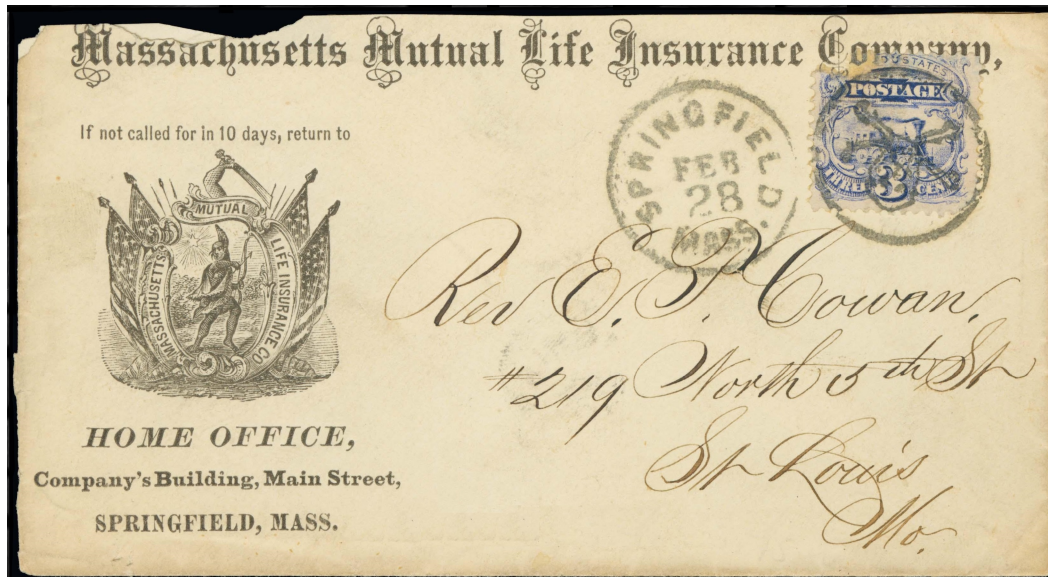 Massachusetts Mutual Life Insurance Company,
If not called for in 10 days, return to
MUTUAL
MASSACHUSETTS
LIFE INSURANCE CO
HOME OFFICE,
Company's Building, Main Street,
SPRINGFIELD, MASS.
SPRINGFIELD.
FEB
28
MASS.
STATES
POSTAGE
THREE 3 CENTS
Rev E. P. Cowan,
#219 North 15th St
St Louis
Mo.